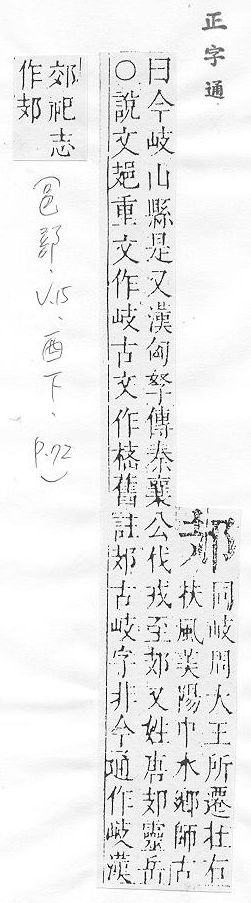 正字通
郊 同岐周大王所遷在右
扶風美陽中水鄉師古
曰今岐山縣是又漢匈奴傳秦襄公伐戎至郊又姓唐郊靈岳
○說文𨙸重文作岐古文作𣖌舊註郊古岐字非今通作岐漢
郊祀志
作郊
(邑部.V.15.酉下.P.72)